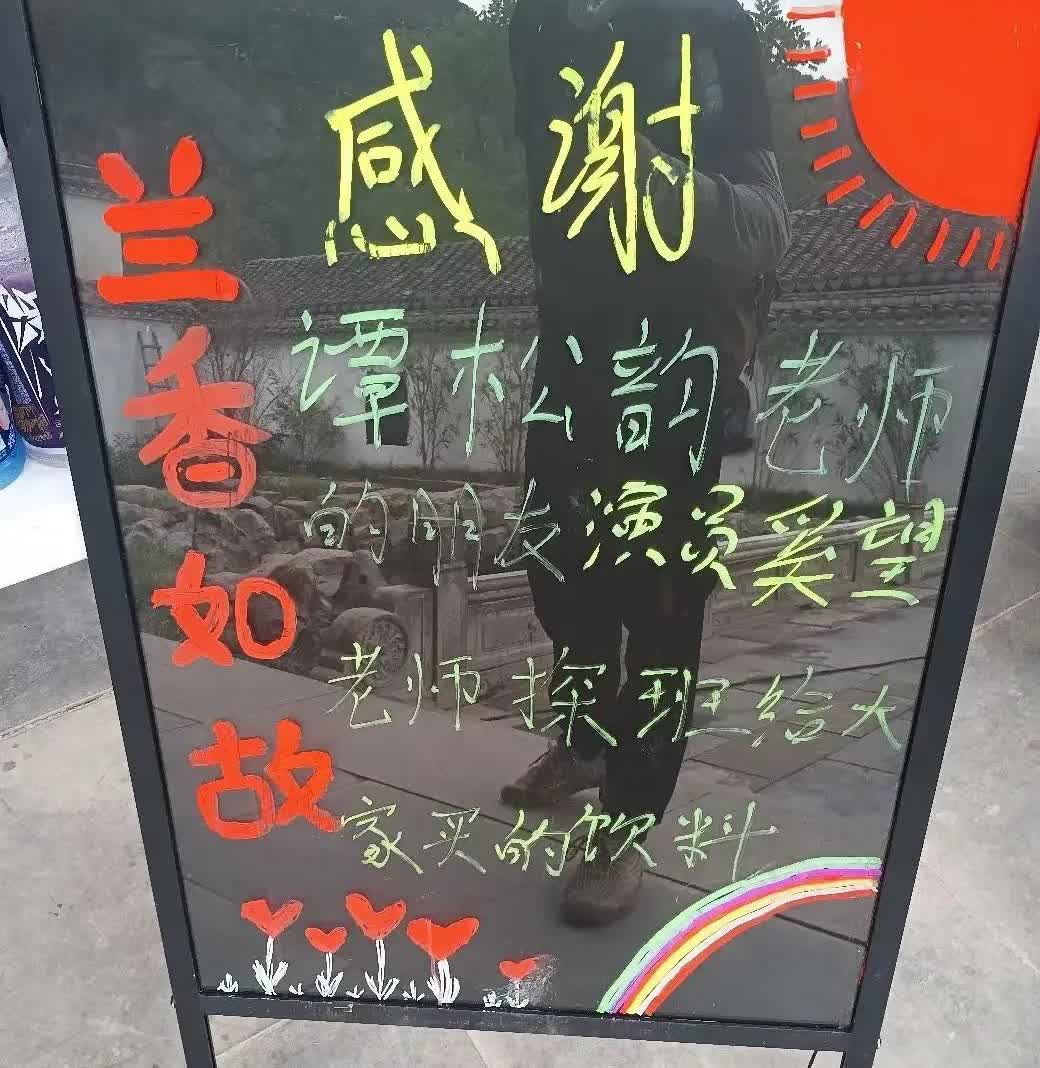 感谢
兰香如故
谭松韵老师
的朋友演员奚望
老师探班给大
家买的饮料